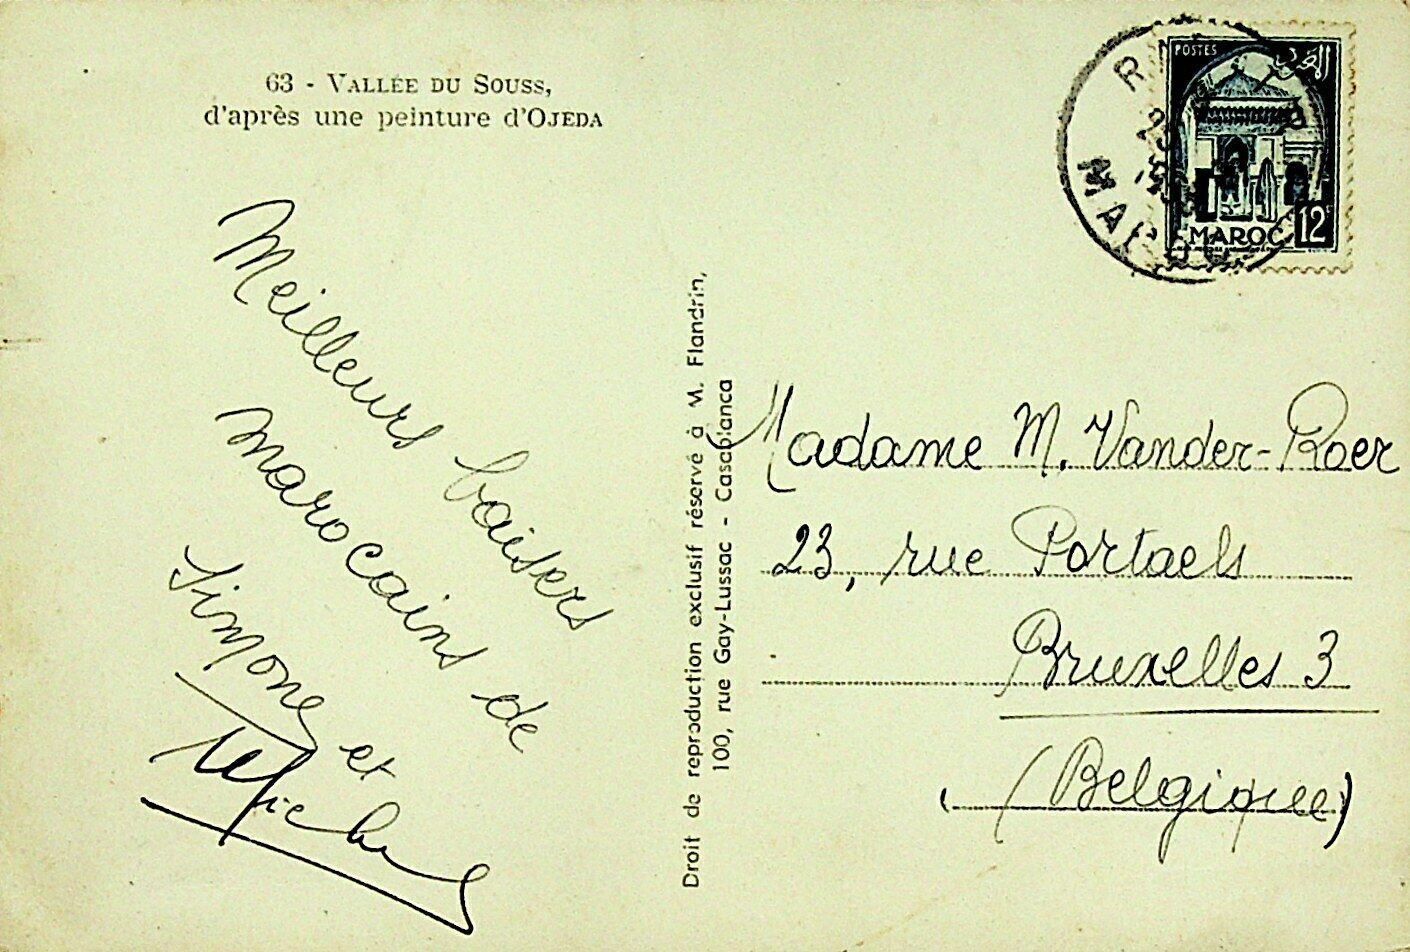 63 - VALLÉE DU SOUSS,
d'après une peinture d'OJEDA
Meilleurs baisers
marocains de
Simone et
Michel
Droit de reproduction exclusif réservé à M. Flandrin,
100, rue Gay-Lussac - Casablanca
POSTES
المغرب
MAROC
12F
MAROC
Madame M. Vander-Roer
23, rue Portaels
Bruxelles 3
(Belgique)